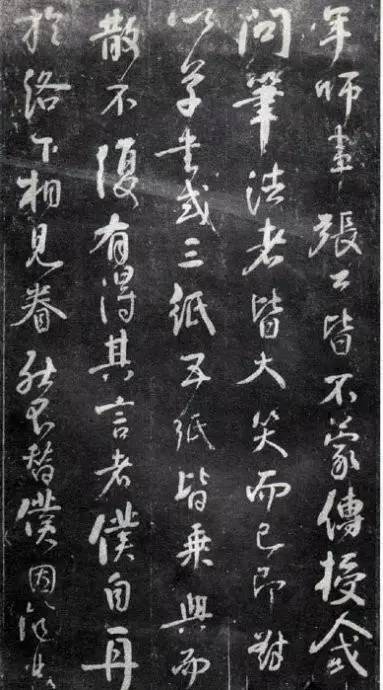 年師事張公皆不蒙傳授人或
問筆法者皆大笑而已即對
以草書或三紙五紙皆乗興而
散不復有得其言者僕自再
於洛下相見眷然不替僕因